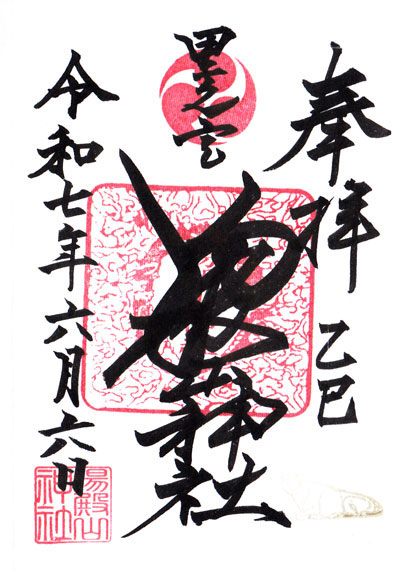 奉拝 乙巳
里之宮
神社
令和七年六月六日
湯殿山
神社